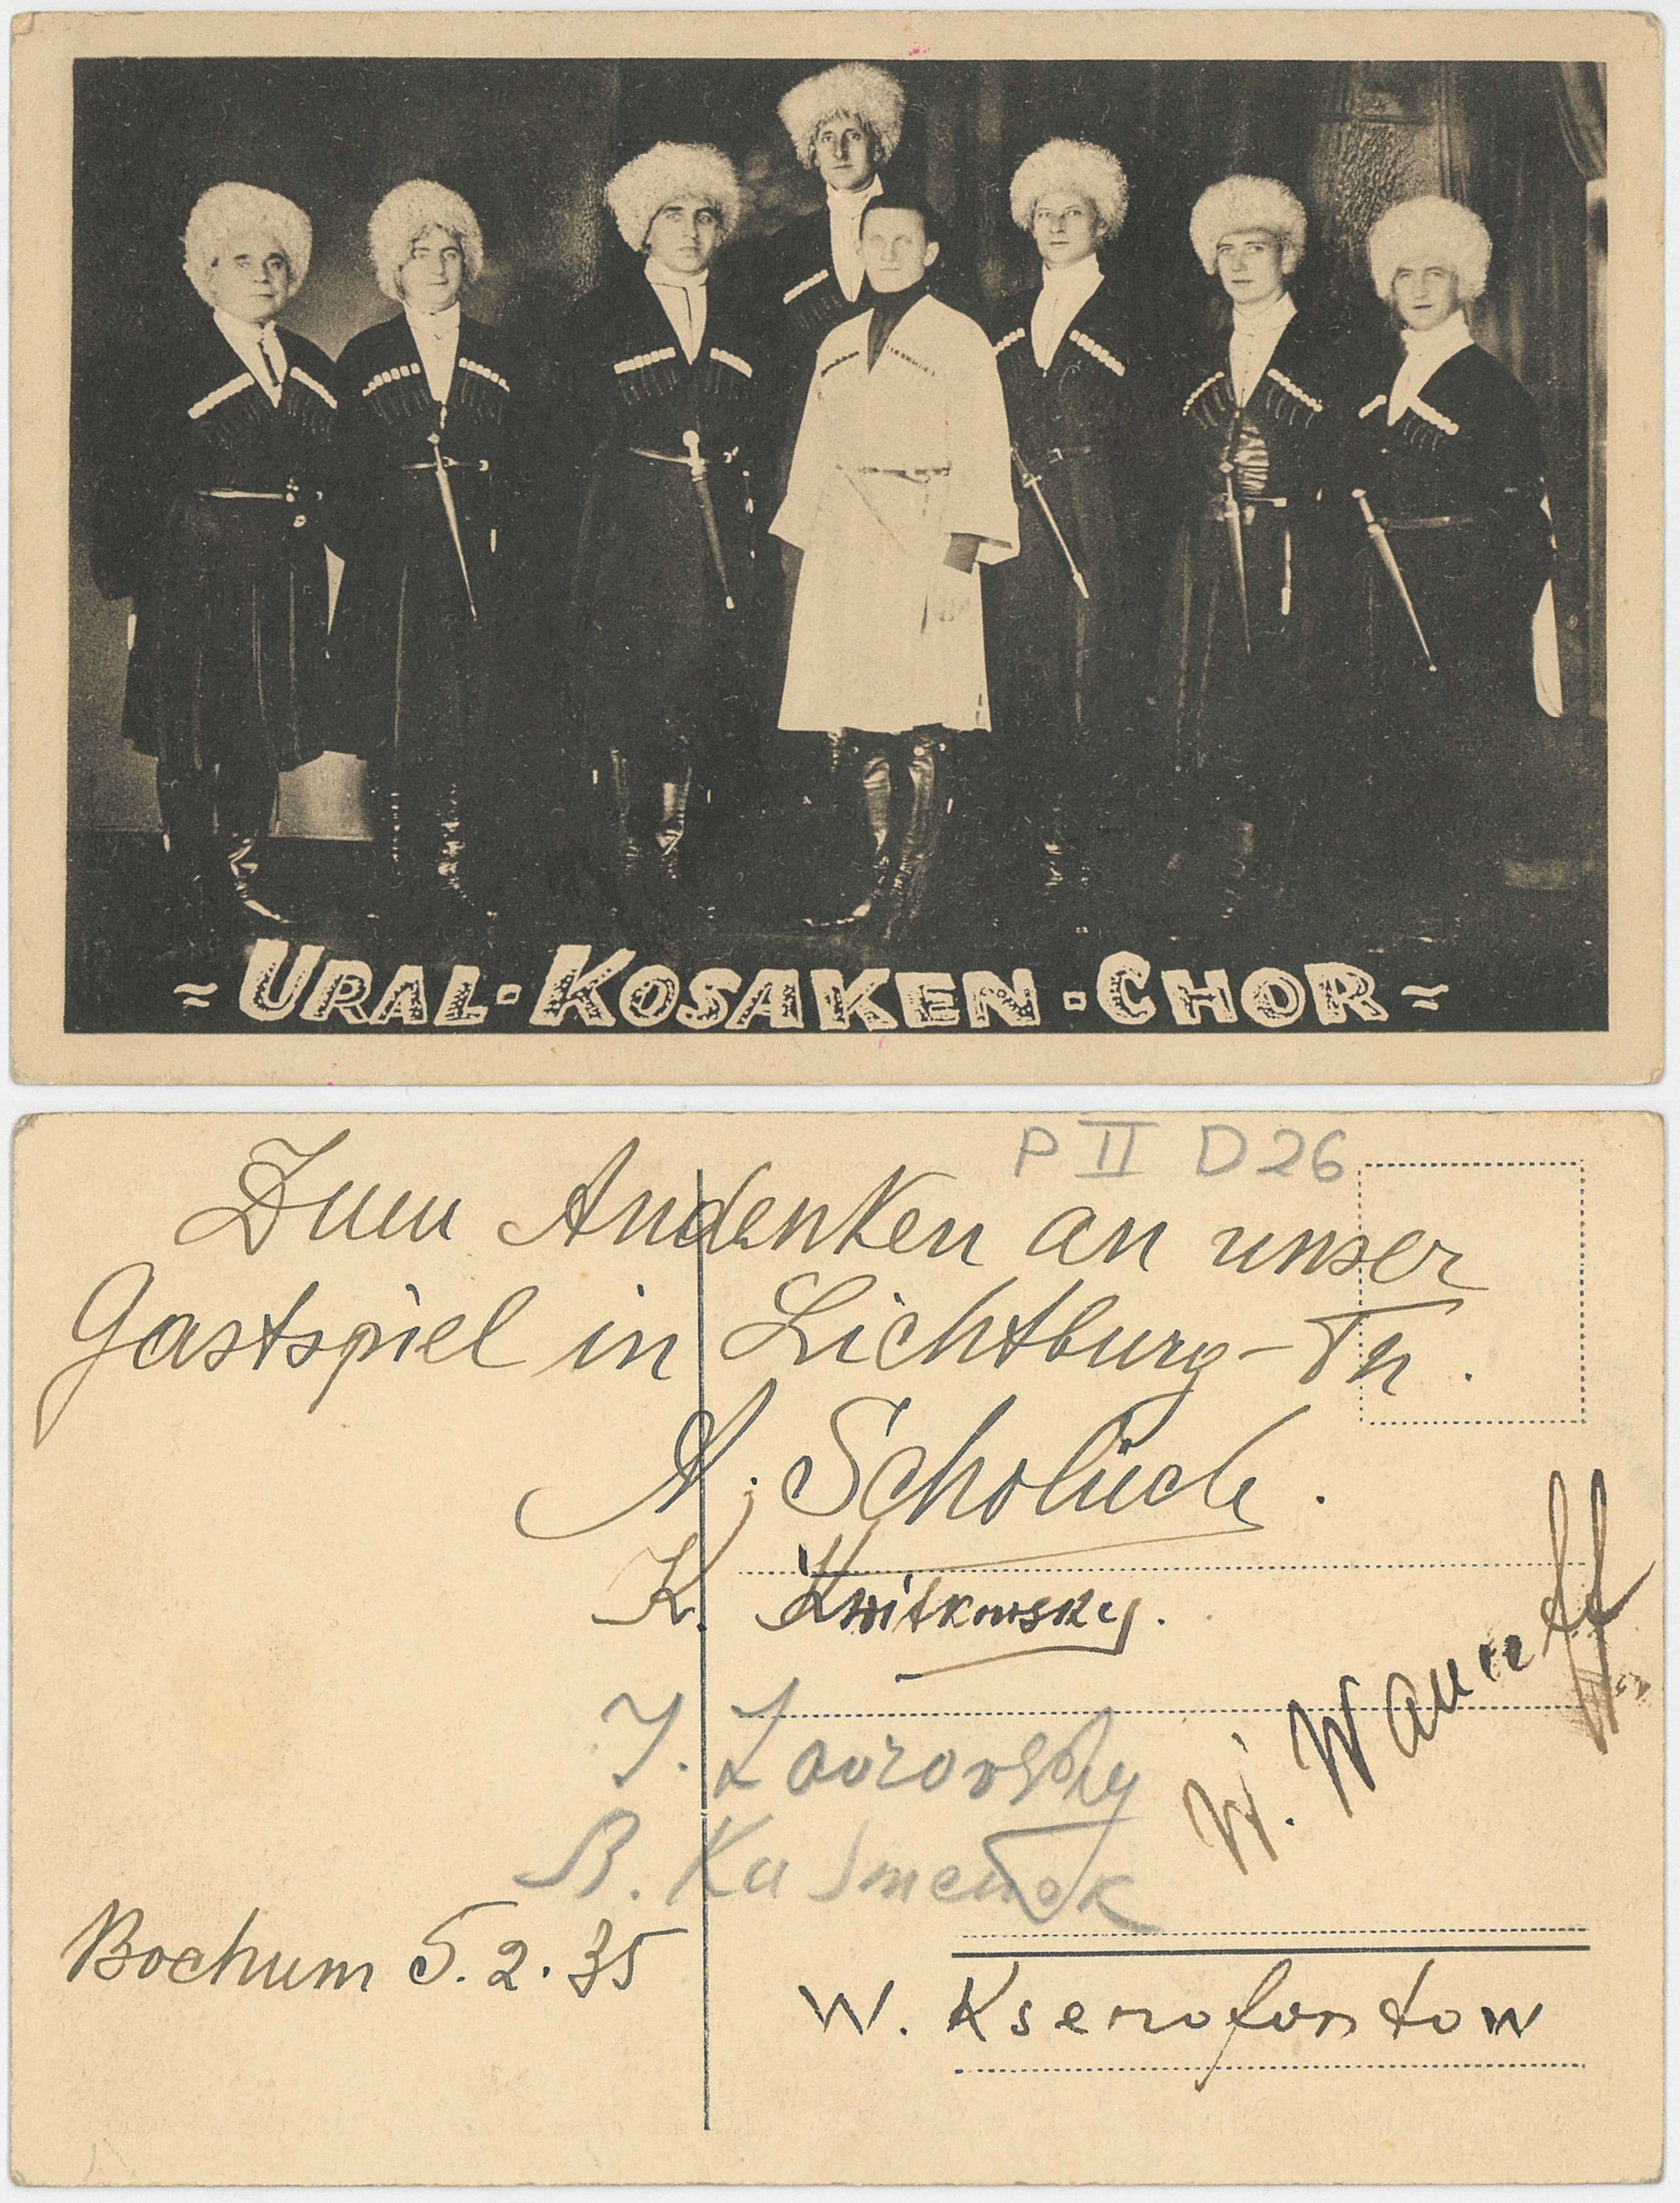 ~ URAL-KOSAKEN-CHOR ~
P II D 26
Zum Andenken an unser
Gastspiel in Lichtburg-Th.
A. Scholuch.
K. Kwitkowsky.
W. Waneeff
J. Lavrovsky
B.
Bochum 5.2.35
W. Ksenofontow